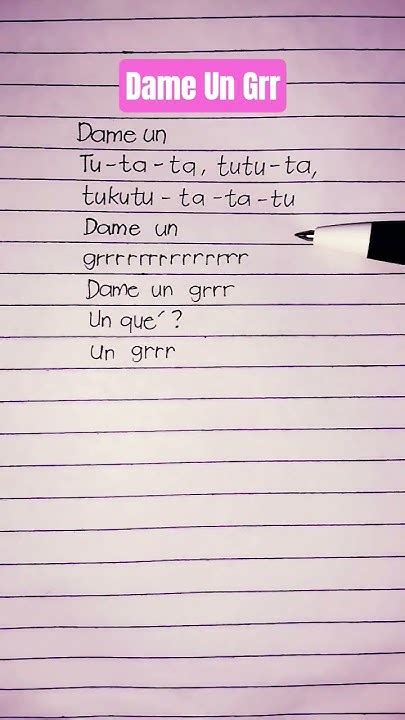 Dame Un Grr
Dame un
Tu-ta-ta, tutu-ta,
tukutu - ta-ta-tu
Dame un
grrrrrrrrrrrrr
Dame un grrr
Un que´?
un grrr